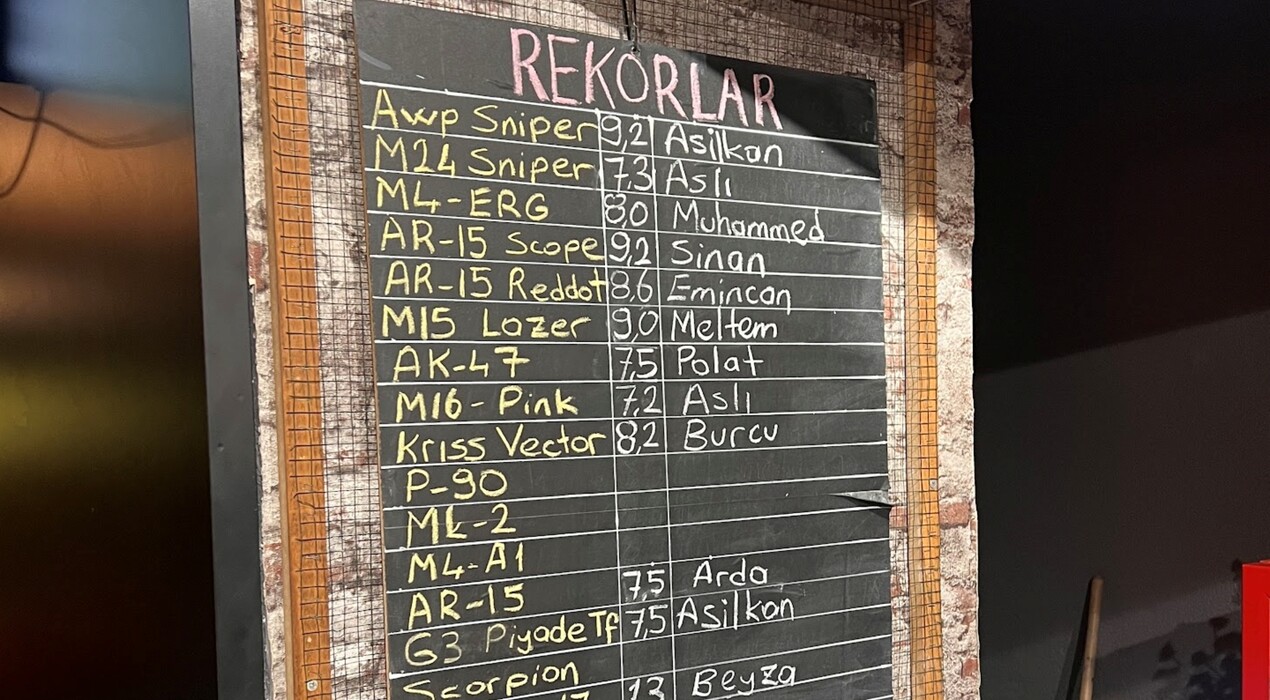 REKORLAR
Awp Sniper 9,2 Asilkan
M24 Sniper 7,3 Aslı
M4-ERG 8,0 Muhammed
AR-15 Scope 9,2 Sinan
AR-15 Reddot 8,6 Emincan
M15 Lazer 9,0 Meltem
AK-47 7,5 Polat
M16-Pink 7,2 Aslı
Kriss Vector 8,2 Burcu
P-90
Mk-2
M4-A1
AR-15 7,5 Arda
G3 Piyade Tf 7,5 Asilkan
Scorpion
13 Beyza